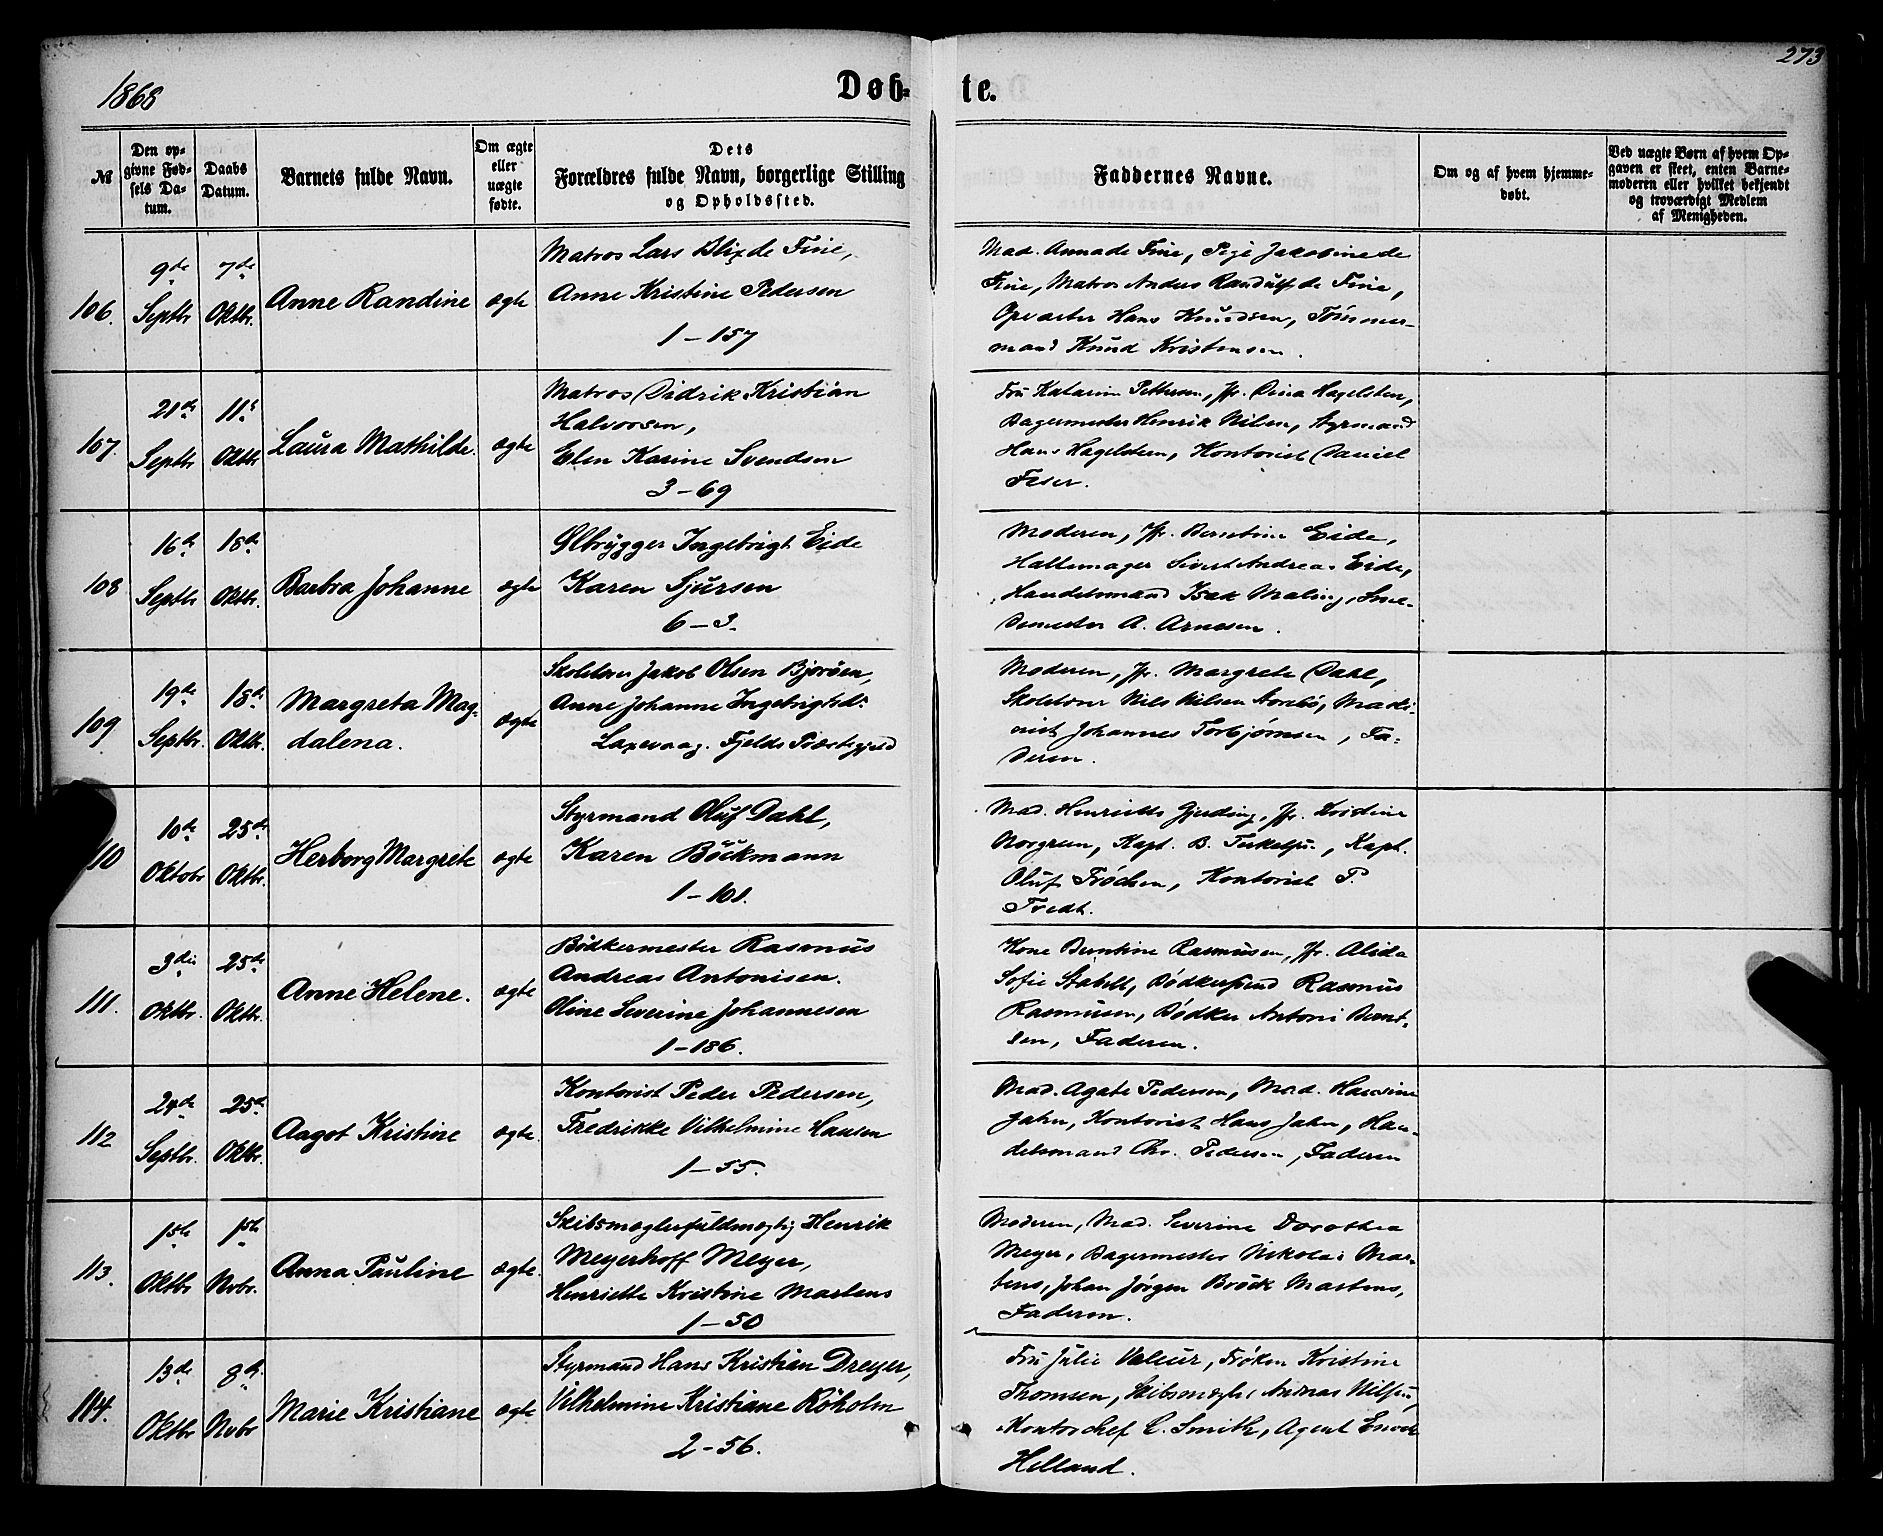 1868
Døb-
te.
273
№
Den op-
givne Fød-
sels Da-
tum.
Daabs
Datum.
Barnets fulde Navn.
Om ægte
eller
uægte
fødte.
Dets
Forældres fulde Navn, borgerlige Stilling
og Opholdssted.
Faddernes Navne.
Om og af hvem hjemme-
døbt.
Ved uægte Børn af hvem Op-
gaven er skeet, enten Barne-
moderen eller hvilket bekjendt
og troværdigt Medlem
af Menigheden.
106.
9de
Septbr
7de
Oktbr.
Anne Randine
ægte
Matros Lars Blix de Fine,
Anne Kristine Pedersen
1-157
Mad. Anna de Fine, Pige Jakobine de
Fine, Matros Anders Randulf de Fine,
Opvarter Hans Knudsen, Tømmer-
mand Knud Kristensen.
107.
21de
Septbr
11te
Oktbr
Laura Mathilde.
ægte
Matros Didrik Kristian
Halvorsen,
Elen Karine Svendsen
3-69
Fru Katarine Pettersen, Jfr. Dina Hagelsten,
Bagermester Henrik Nilsen, Styrmand
Hans Hagelsteen, Kontorist Daniel
Feser.
108
16de
Septbr
18de
Oktbr.
Barbra Johanne
ægte
Ølbrygger Ingebrigt Eide
Karen Sjursen
6-3.
Moderen, Jfr. Berntine Eide,
Hattemager Sivert Andreas Eide,
Handelsmand Isak Maling, Sme-
demester A. Arnesen.
109
19de
Septbr.
18de
Oktbr.
Margreta Mag-
dalena.
ægte
Skolelærer Jakob Olsen Bjorøen,
Anne Johanne Ingebrigtsd.
Laxevaag. Fjelds Præstegjeld
Moderen, Jfr. Margrete Dahl,
Skolelærer Nils Nilsen, Maski-
nist Johannes Torbjørnsen, Fa-
deren.
110
10de
Oktobr
25de
Oktbr.
Herborg Margrete
ægte
Styrmand Oluf Dahl,
Karen Böckmann
1-101.
Mad. Henriette Gjerding, Jfr. Kristine
Norgreen, Kapt. B. Terkelsen, Kapt.
Oluf Trøchsen, Kontorist P.
Tredt.
111.
3die
Oktbr.
25de
Oktbr.
Anne Helene.
ægte
Bødkermester Rasmus
Andreas Antonisen.
Oline Severine Johannesen
1-186.
Kone Berntine Rasmusen, Jfr. Alida
Sofie Stabell, Bødkersvend Rasmus
Rasmusen, Bødker Antoni Bernt-
sen, Faderen.
112
24de
Septbr.
25de
Oktbr.
Aagot Kristine
ægte.
Kontorist Peder Pedersen,
Fredrikke Vilhelmine Hansen
1-55.
Mad. Agate Pedersen, Mad. Hansine
Jahn, Kontorist Hans Jahn, Han-
delsmand Chr. Pedersen, Faderen
113.
15de
Oktbr
1ste
Nvbr.
Anna Pauline
ægte.
Skibsmæglerfuldmægtig Henrik
Meyerhoff Meyer,
Henriette Kristine Martens
1-50
Moderen, Mad. Severine Dorothea
Meyer, Bagermester Nikolai Mar-
tens, Johan Jörgen Brück Martens,
Faderen.
114.
13de
Oktbr
8de
Nvbr
Marie Kristiane
ægte
Styrmand Hans Kristian Dreyer,
Vilhelmine Kristiane Röholm
2-56.
Fru Julie Valeur, Frøken Kristine
Thomsen, Skibsmægler Andreas Nilsen,
Kontorchef C. Smith, Agent Enok
Helland.